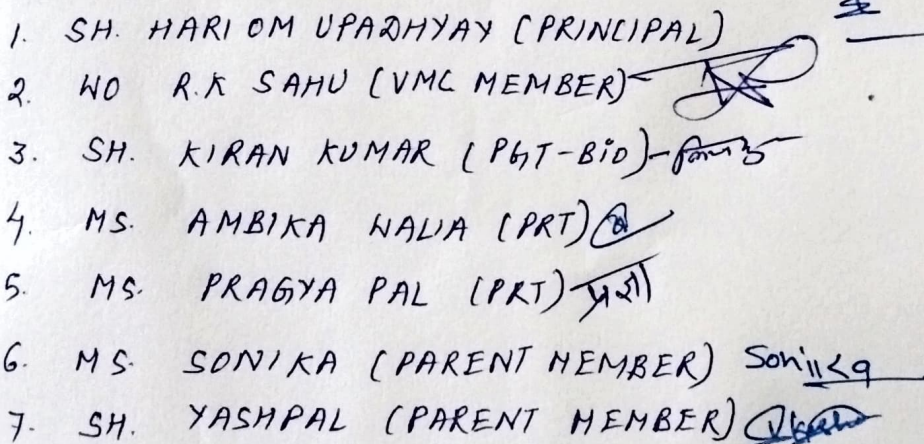 1. SH. HARI OM UPADHYAY (PRINCIPAL)
2. WO R.K SAHU (VMC MEMBER)
3. SH. KIRAN KUMAR (PGT-BiO)-
4. MS. AMBIKA WALIA (PRT)
5. MS. PRAGYA PAL (PRT)
6. MS. SONIKA (PARENT MEMBER) Sonika
7. SH. YASHPAL (PARENT MEMBER)